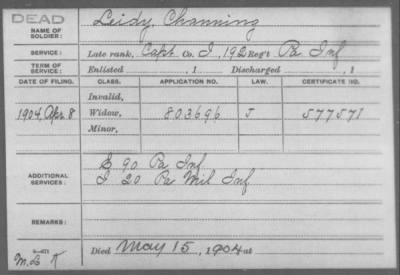 DEAD
NAME OF SOLDIER: Leidy, Channing
SERVICE: Late rank, Capt Co. I, 192 Reg't Pa Inf
TERM OF SERVICE: Enlisted , 1 Discharged , 1
DATE OF FILING. CLASS. APPLICATION NO. LAW. CERTIFICATE NO.
Invalid,
1904, Apr. 8 Widow, 803696 J 577571
Minor,
ADDITIONAL SERVICES: E 90 Pa Inf
I 20 Pa Mil Inf
REMARKS:
Died May 15, 1904 at